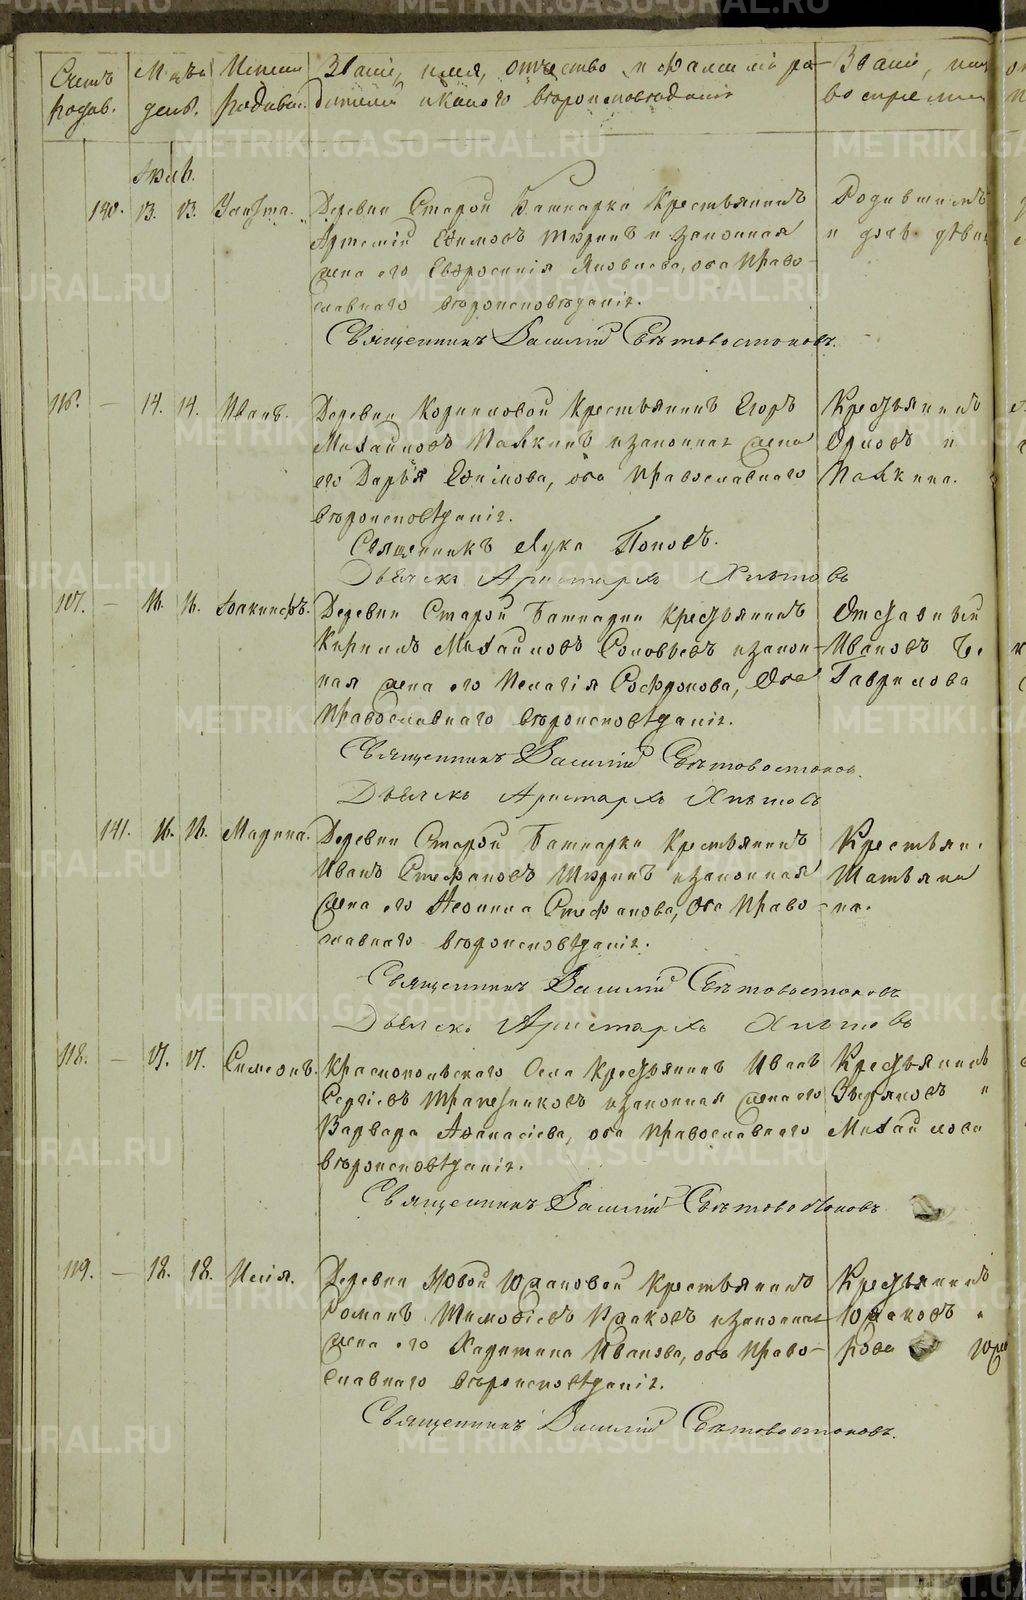 METRIKI.GASO-URAL.RU
Счетъ родив.
Мѣсяцъ день.
Имена родивш.
Званіе, имя, отчество и фамилія ро-
дителей и какого вѣроисповѣданія
Званіе, имя
воспріемни
140. 13. 13.
Деревни Старой Башкарки Крестьянинъ
Артемій Ефимовъ Тюринъ и законная
жена его Евфросинія Яковлева, оба Право-
славнаго вѣроисповѣданія.
Священникъ Василій Свѣтовостоковъ.
116. — 14. 14. Иванъ.
Деревни Корниловой Крестьянинъ Егоръ
Михайловъ Палкинъ и законная жена
его Дарья Ефимова, оба Православнаго
вѣроисповѣданія.
Священникъ Лука Поповъ.
Дьячекъ Аристархъ Хлѣтовъ
Крестьянинъ
Палкина.
117. — 16. 16. Іоакинфъ.
Деревни Старой Башкарки Крестьянинъ
Кириллъ Михайловъ Соловьевъ и закон-
ная жена его Пелагія Софронова, Оба
Православнаго вѣроисповѣданія.
Священникъ Василій Свѣтовостоковъ.
Дьячекъ Аристархъ Хлѣтовъ
Отставный
Ивановъ
Гаврилова
141. 16. 16. Марина.
Деревни Старой Башкарки Крестьянинъ
Иванъ Стефановъ Тюринъ и законная
жена его Стефанова, Оба Право-
славнаго вѣроисповѣданія.
Священникъ Василій Свѣтовостоковъ
Дьячекъ Аристархъ Хлѣтовъ
Крестьян
Татьяна
118. — 17. 17. Симеонъ.
Краснопольскаго Села Крестьянинъ Иванъ
Сергіевъ Трапезниковъ и законная жена его
Варвара Афанасіева, оба Православнаго
вѣроисповѣданія.
Священникъ Василій Свѣтовостоковъ
Крестьянинъ
и
Михайлова
119. — 18. 18.
Деревни Новой Южаковой Крестьянинъ
Романъ Тимофіевъ Южаковъ и законная
жена его Харитина Иванова, оба Право-
славнаго вѣроисповѣданія.
Священникъ Василій Свѣтовостоковъ.
Крестьянинъ
Южаковъ